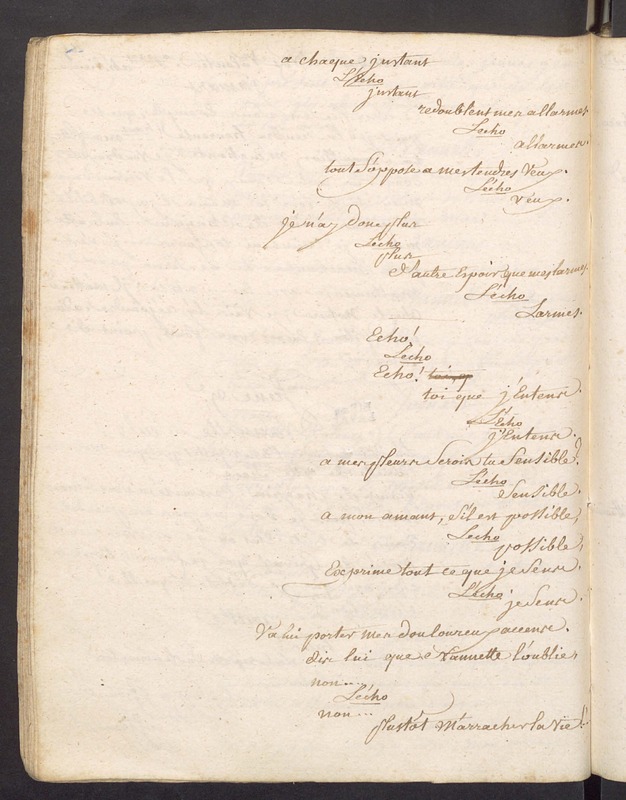 a chaque justant
L'écho
justant
redoublent mes allarmes
L'écho
allarmes.
tout s'oppose a mes tendres Vœux.
L'écho
vœux.
je n'ay donc plus
L'écho
plus
d'autre Espoir que mes larmes
L'écho
Larmes.
Echo!
L'écho
Echo!
toi que j'Entens
L'Echo
j'Entens.
a mes pleurs serois tu sensible?
L'écho
sensible.
a mon amant, s'il est possible,
L'écho
possible,
Exprime tout ce que je sens.
L'écho
je sens.
Va lui porter mes douloureux accens.
dis lui que Nannette l'oublie,
non....
L'écho
non...
plustôt m'arracher la vie!